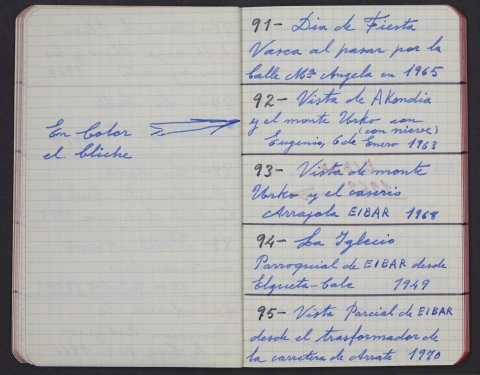 En Color
el Cliche
91- Dia de Fiesta
Vasca al pasar por la
Calle Mª Angela en 1965
92- Vista de Akondia
y el monte Urko con
(con nieve)
Eugenio, 6 de Enero 1963
93- Vista de monte
Urko y el caserio
Arrajola EIBAR 1968
94- La Iglecia
Parroquial de EIBAR desde
Elgueta-Cale 1949
95- Vista Parcial de EIBAR
desde el trasformador de
la carretera de Arrate 1970